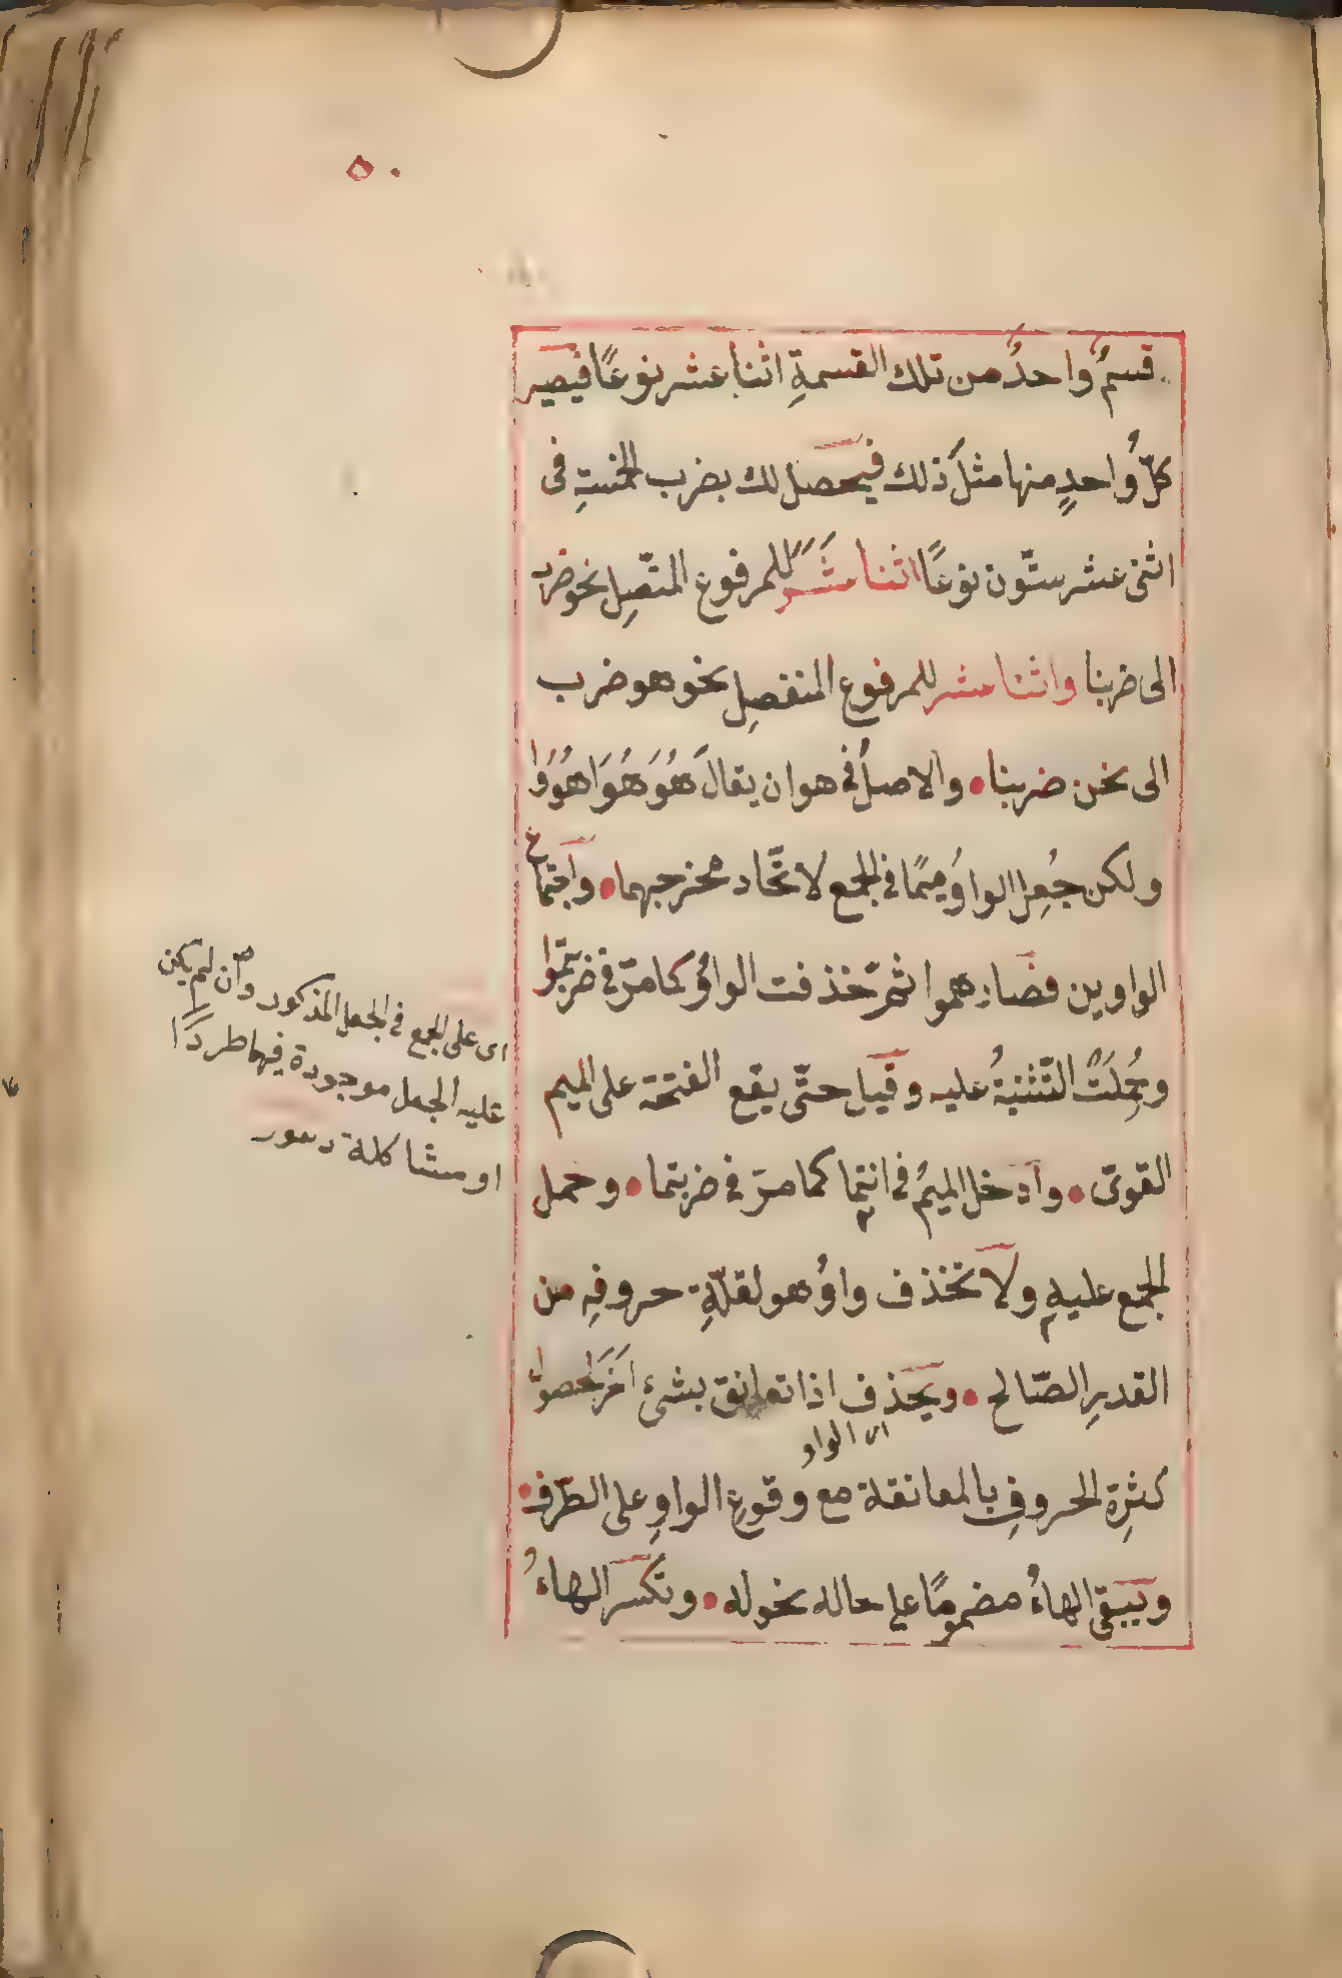 ٥٠
قسمٌ واحدٌ من تلك القسمةِ اثنا عشر نوعًا فيصير
كلّ واحدٍ منها مثلَ ذلك فيحصل لك بضرب الخمسةِ فى
اثنى عشر ستّون نوعًا اثنا عشَرَ للمرفوع المتّصِل نحو ضرب
الى ضربنا واثنا عشر للمرفوع المنفصِل نحو هو ضرب
الى نحن ضربنا • والاصلُ فى هو ان يقالَ هُوَ هُوَا هُوُوا
ولكن جُعِل الواوُ ميمًا فى الجمع لاتّحاد مخرجهما • واجتماع
الواوين فصَار هموا ثمّ حذفت الواوُ كما مرّ فى ضربتمُوا
وحُمِلَتْ التّثنيةُ عليه وقيل حتّى يقع الفتحة على الميم
القوىّ • وادخل الميمُ فى انتما كما مرّ فى ضربتما • وحمل
الجمع عليهِ ولا تحذف واوُ هو لقلّةِ حروفِه من
القديرِ الصّالح • ويحذف اذا تعانق بشئ اخَرَ لحصول
اى الواو
كثرِة الحروفِ بالمعانقة مع وقوعِ الواوِ على الطّرف •
ويبقى الهاءُ مضمومًا على حاله نحو له • وتكسر الهاءُ
اى على الجمع فى الجعل المذكور وان لم يكن
عليه الجعل موجودة فيهما طردًا
او مشاكلة